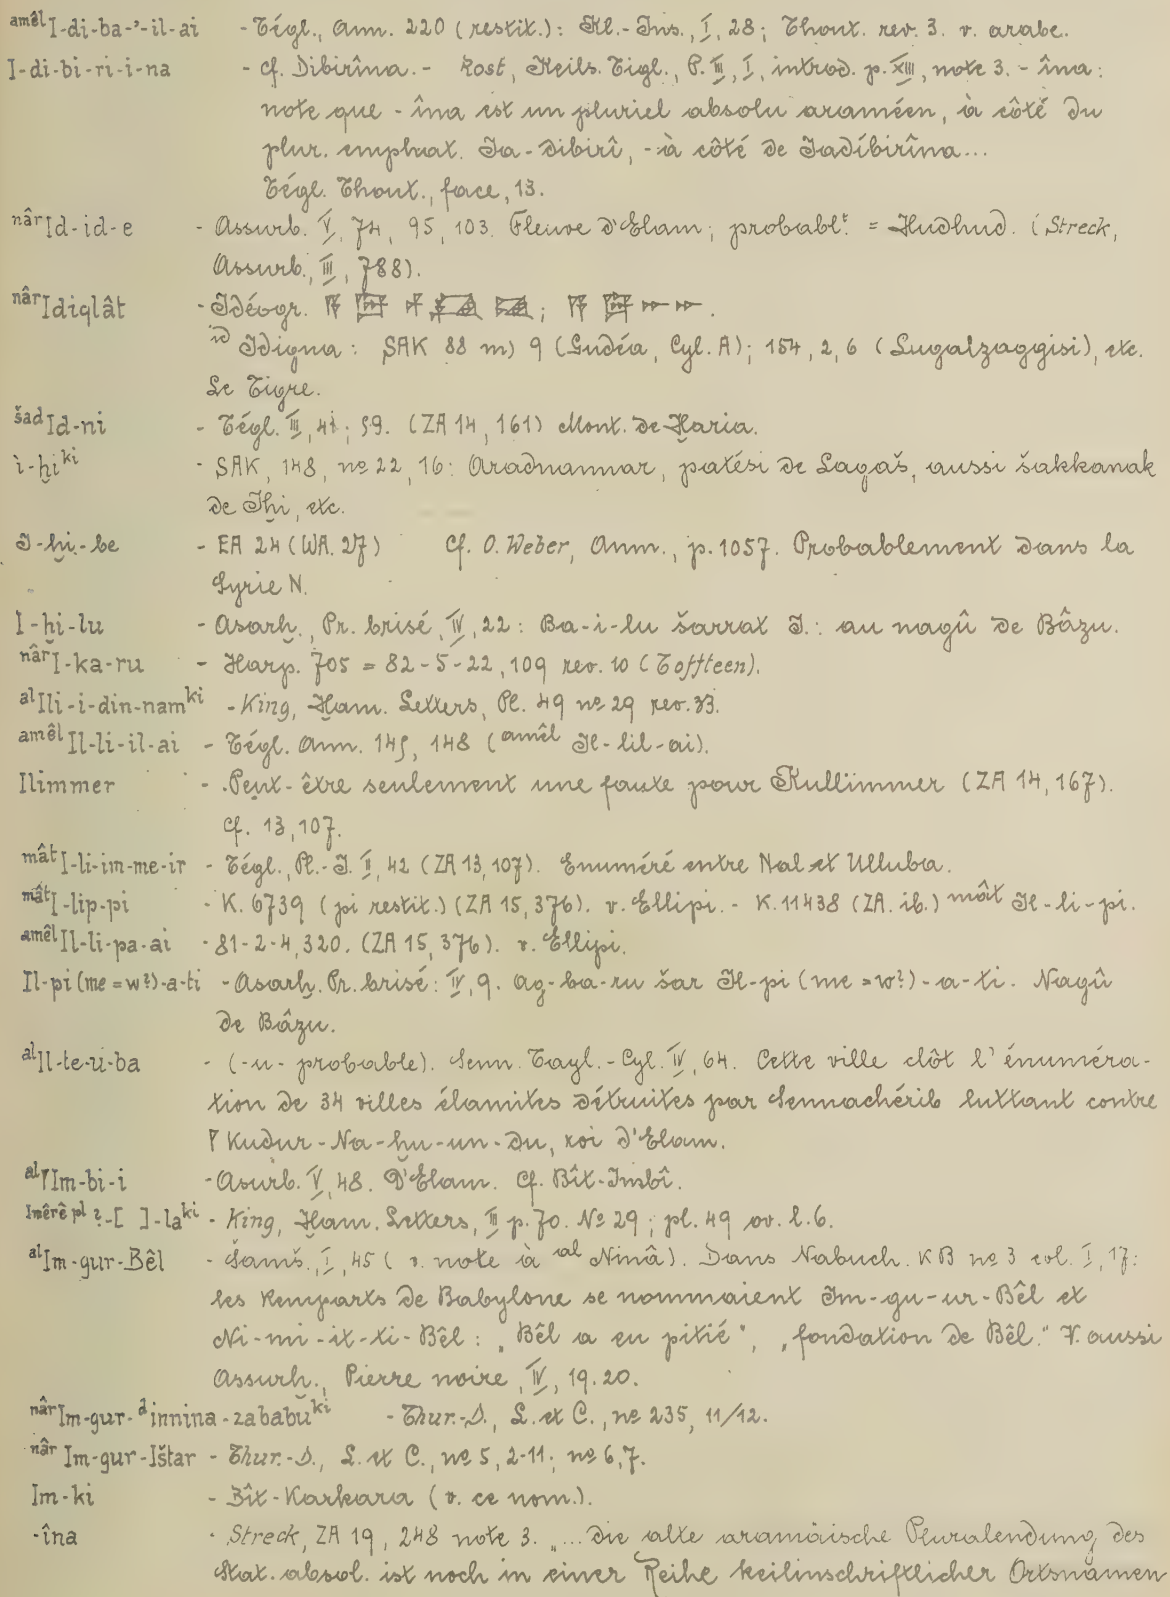 amêl I-di-ba-'-il-ai - Tégl., Ann. 220 (restit.): Kl.-Ins., I, 28; Thont. rev. 3. v. arabe.
I-di-bi-ri-i-na - cf. Dibirîna. - Rost, Keils. Tigl., P. III, I, introd. p. XIII, note 3. - îna:
note que - îna est un pluriel absolu araméen, à côté du
plur. emphat. Ia-dibirî, - à côté de Iadibirîna...
Tégl. Thont., face, 13.
nâr Id-id-e - Assurb. V, 74, 95, 103. Fleuve d'Elam; probablt. = Hudhud. (Streck,
Assurb., III, 788).
nâr Idiqlât - Idéogr.
id Idigna: SAK 88 m) 9 (Gudéa, Cyl. A); 154, 2, 6 (Lugalzaggisi), etc.
Le Tigre.
šad Id-ni - Tégl. III, 41; 59. (ZA 14, 161) Mont. de Ḫaria.
ì-ḫi ki - SAK, 148, no 22, 16: Aradnannar, patési de Lagaš, aussi šakkanak
de Iḫi, etc.
I-ḫi-be - EA 24 (WA. 27) Cf. O. Weber, Anm., p. 1057. Probablement dans la
Syrie N.
I-ḫi-lu - Asarḫ., Pr. brisé, IV, 22: Ba-i-lu šarrat I.: au nagû de Bâzu.
nâr I-ka-ru - Harp. 705 = 82-5-22, 109 rev. 10 (Toffteen).
al Ili-i-din-nam ki - King, Ḫam. Letters, Pl. 49 no 29 rev. 33.
amêl Il-li-il-ai - Tégl. Ann. 145, 148 (amêl Il-lil-ai).
Ilimmer - Peut-être seulement une faute pour Kullimmer (ZA 14, 167).
Cf. 13, 107.
mât I-li-im-me-ir - Tégl., Pl.-I. II, 42 (ZA 13, 107). Enuméré entre Nal et Ulluba.
mât I-lip-pi - K. 6739 (pi restit.) (ZA 15, 376). v. Ellipi. - K. 11438 (ZA. ib.) mât Il-li-pi.
amêl Il-li-pa-ai - 81-2-4, 320. (ZA 15, 376). v. Ellipi.
Il-pi (me = w?)-a-ti - Asarḫ. Pr. brisé: IV, 9. Ag-ba-ru šar Il-pi (me = w?)-a-ti. Nagû
de Bâzu.
al Il-te-u-ba - (-u- probable). Senn. Tayl.-Cyl. IV, 64. Cette ville clôt l'énuméra-
tion de 34 villes élamites détruites par Sennachérib luttant contre
Kudur-Na-ḫu-un-du, roi d'Elam.
al Im-bi-i - Asurb. V, 48. D'Elam. Cf. Bît-Imbî.
Imêrê pl ?-[ ]-la ki - King, Ḫam. Letters, III p. 70. No 29; pl. 49 av. l. 6.
al Im-gur-Bêl - Šamš., I, 45 (v. note à al Ninâ). Dans Nabuch. KB no 3 col. I, 17:
les remparts de Babylone se nommaient Im-gu-ur-Bêl et
Ni-mi-it-ti-Bêl: „Bêl a eu pitié", „fondation de Bêl." V. aussi
Assurḫ., Pierre noire, IV, 19. 20.
nâr Im-gur-d innina-zababū ki - Thur.-D., L. et C., no 235, 11/12.
nâr Im-gur-Ištar - Thur.-D., L. et C., no 5, 2-11; no 6, 7.
Im-ki - Bît-Karkara (v. ce nom.).
-îna - Streck, ZA 19, 248 note 3. „... die alte aramäische Pluralendung des
Stat. absol. ist noch in einer Reihe keilinschriftlicher Ortsnamen